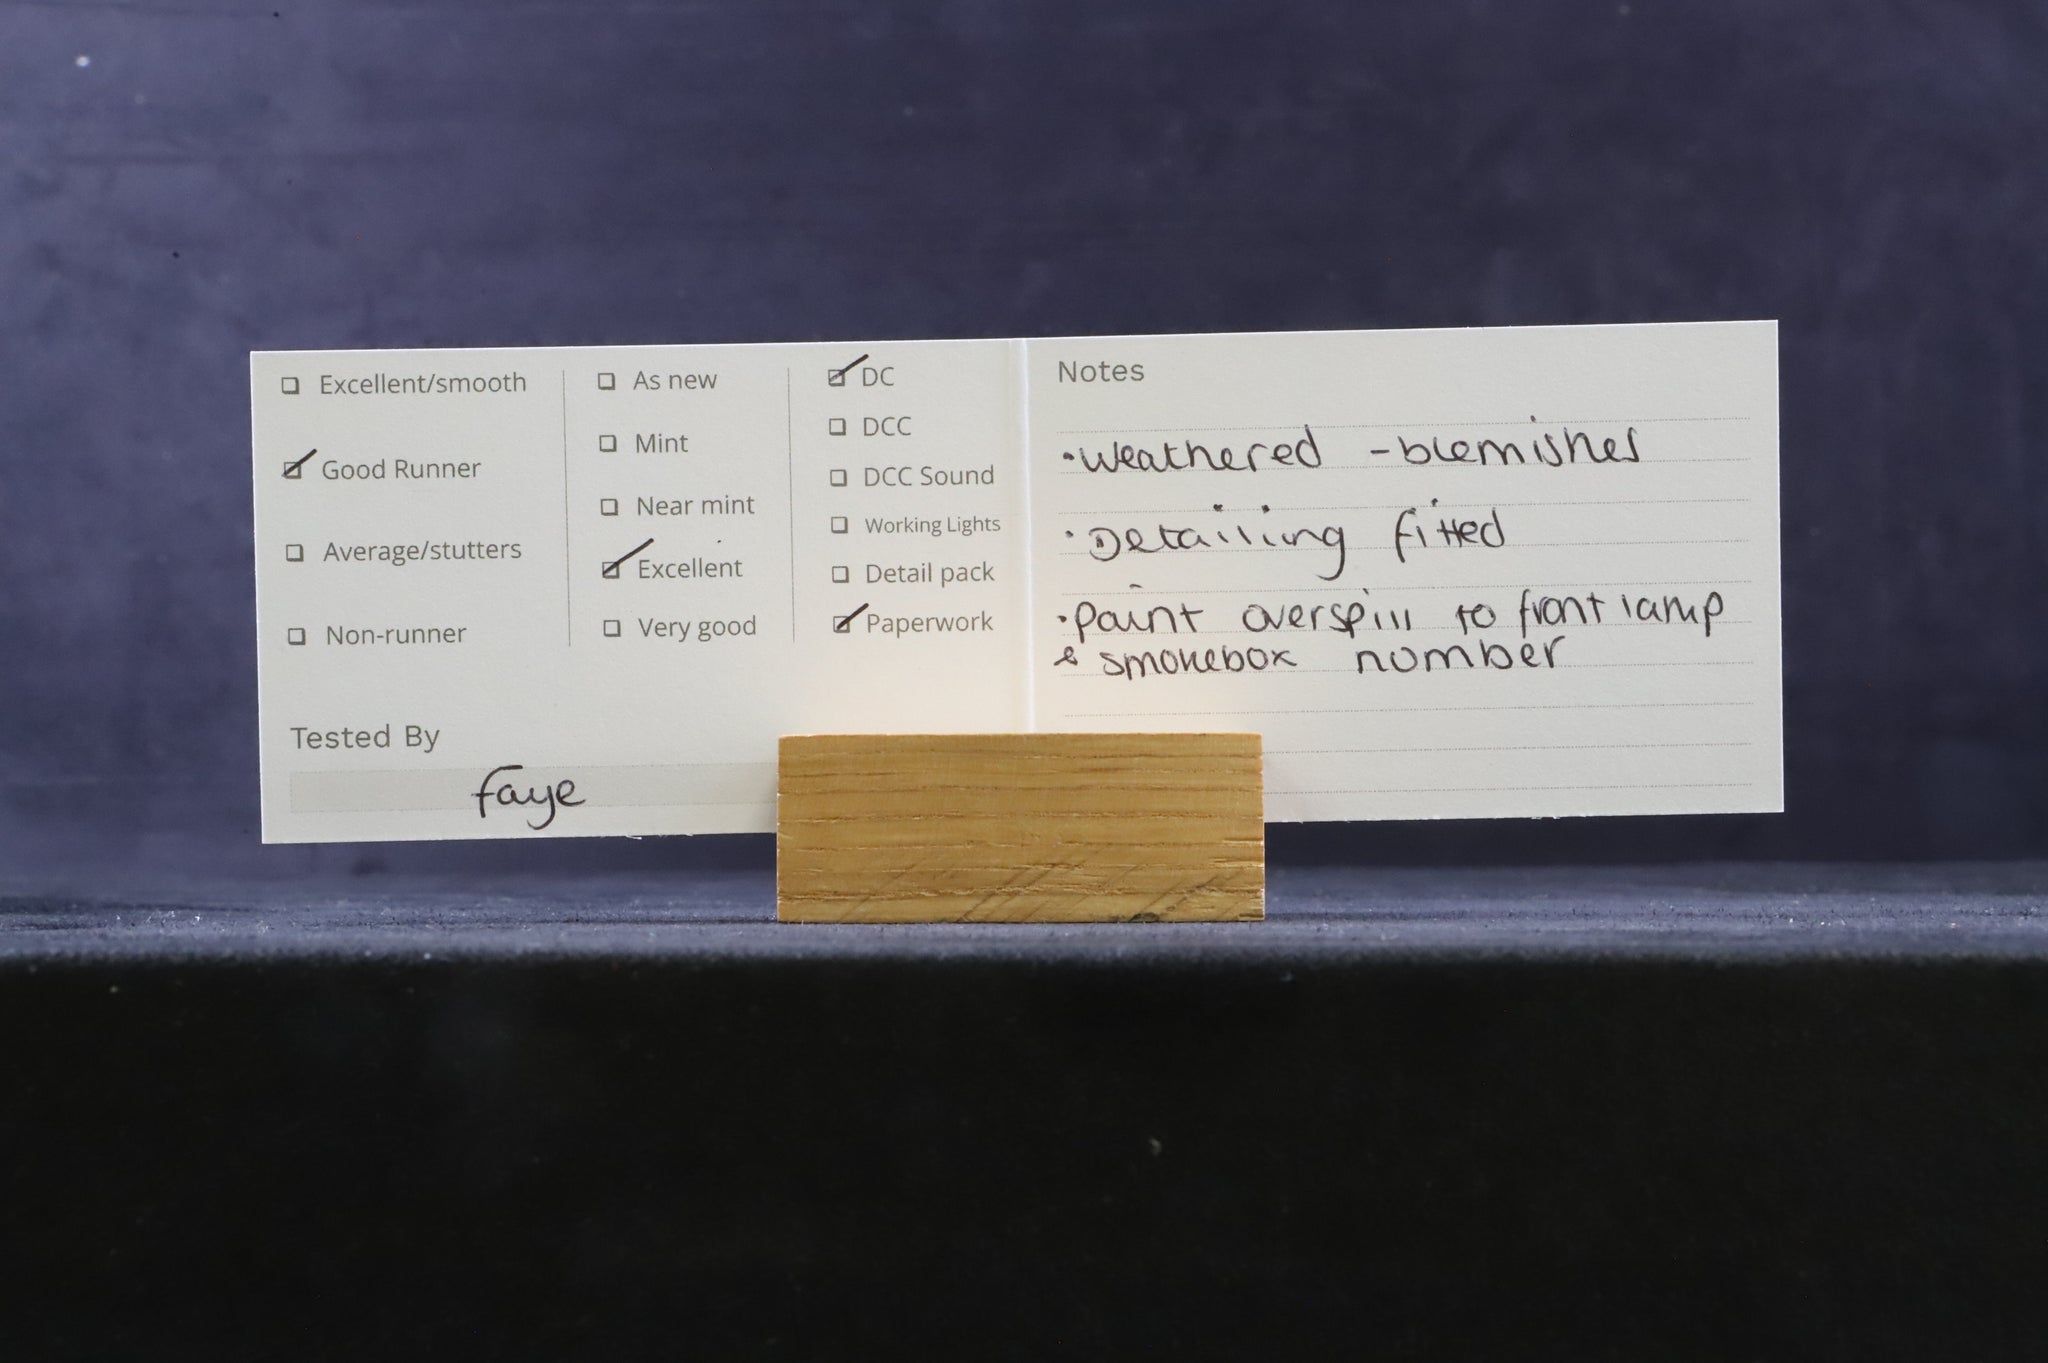 Excellent/smooth
Good Runner
Average/stutters
Non-runner
As new
Mint
Near mint
Excellent
Very good
DC
DCC
DCC Sound
Working Lights
Detail pack
Paperwork
Tested By
Faye
Notes
• Weathered - blemishes
• Detailing fitted
• Paint overspill to front lamp
& smokebox number